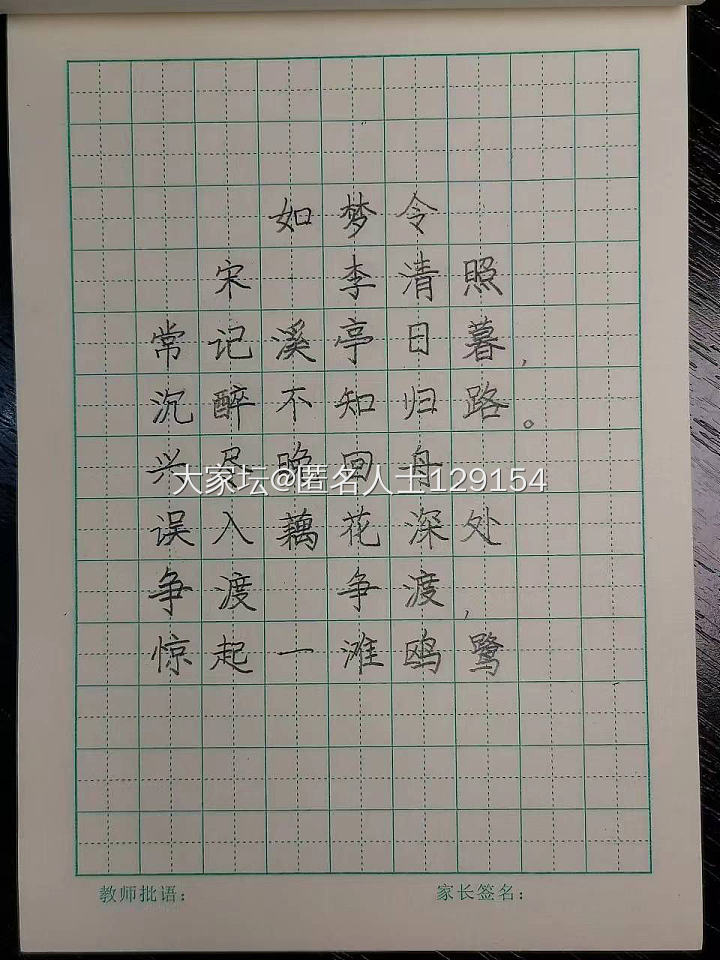 如梦令
宋 李清照
常记溪亭日暮,
沉醉不知归路。
兴尽晚回舟
大家坛@匿名人士129154
误入藕花深处
争渡 争渡,
惊起一滩鸥鹭
教师批语: 家长签名: